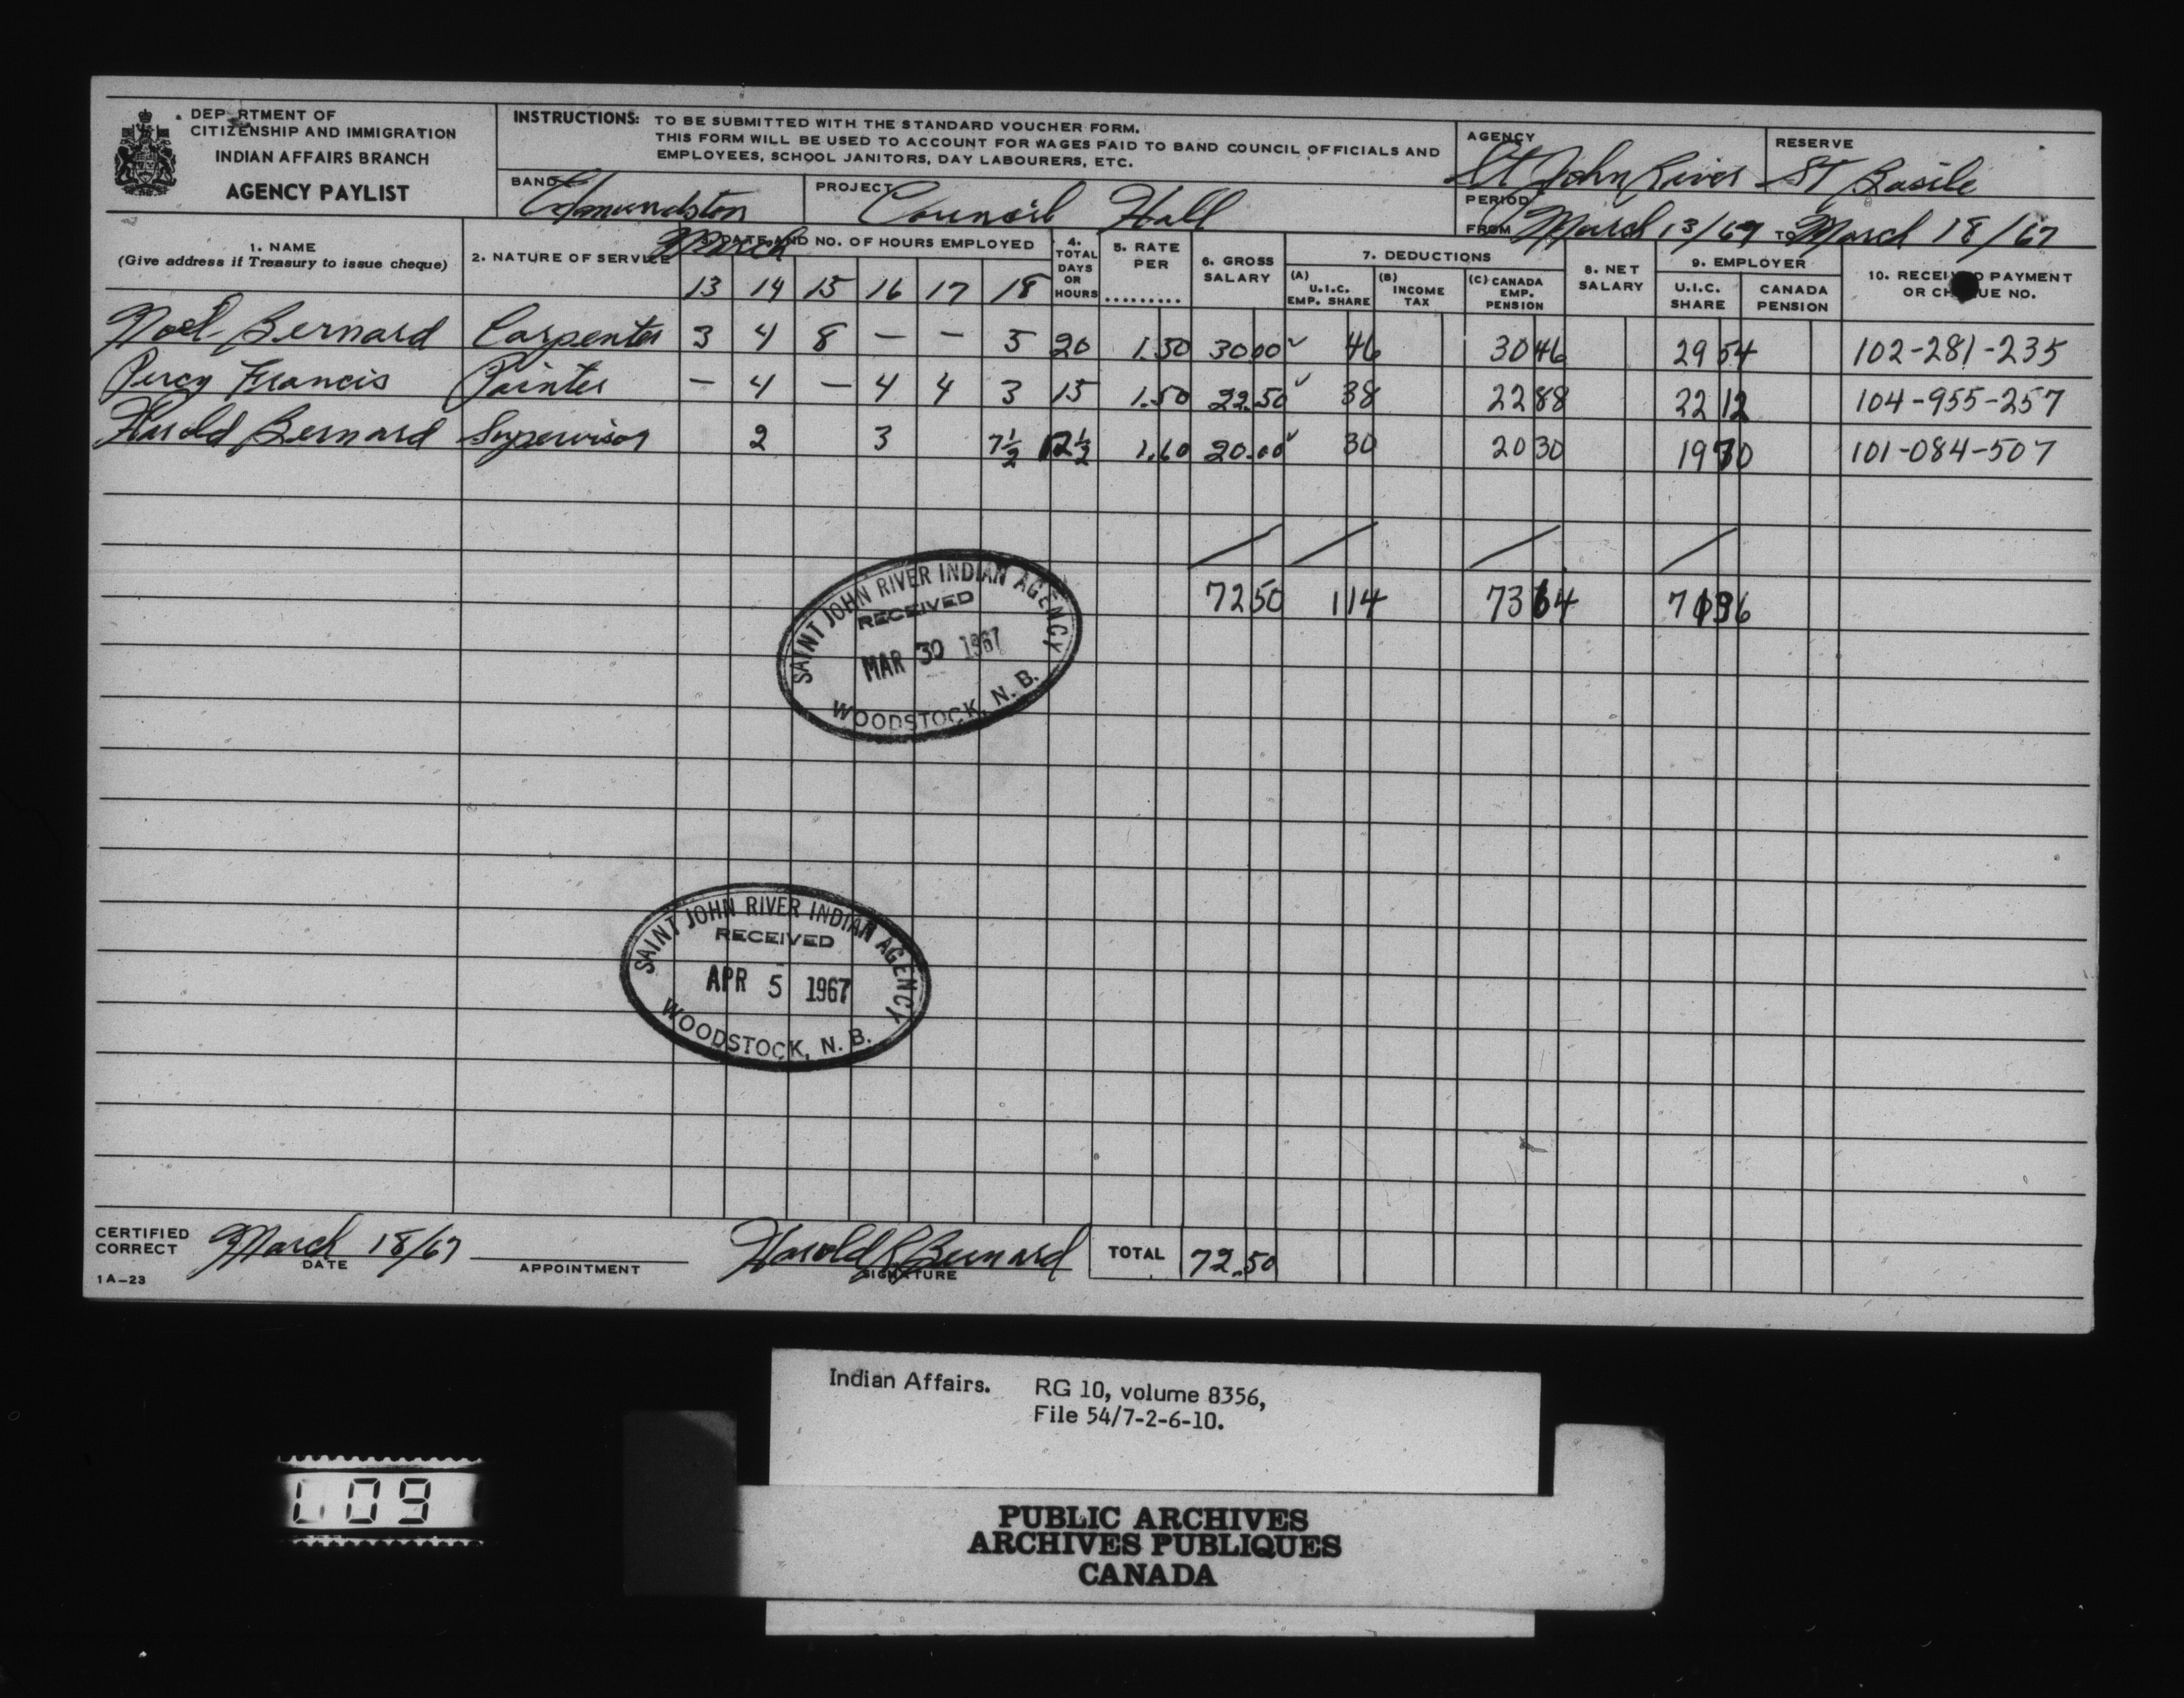 DEPARTMENT OF
CITIZENSHIP AND IMMIGRATION
INDIAN AFFAIRS BRANCH
AGENCY PAYLIST
INSTRUCTIONS: TO BE SUBMITTED WITH THE STANDARD VOUCHER FORM.
THIS FORM WILL BE USED TO ACCOUNT FOR WAGES PAID TO BAND COUNCIL OFFICIALS AND
EMPLOYEES, SCHOOL JANITORS, DAY LABOURERS, ETC.
AGENCY St John River
RESERVE ST Basile
BAND Edmundston
PROJECT Council Hall
PERIOD
FROM March 13/67 TO March 18/67
1. NAME
(Give address if Treasury to issue cheque)
2. NATURE OF SERVICE
March
3. DATE AND NO. OF HOURS EMPLOYED
13 14 15 16 17 18
4. TOTAL DAYS OR HOURS
5. RATE PER .........
6. GROSS SALARY
7. DEDUCTIONS
(A) U.I.C. EMP. SHARE
(B) INCOME TAX
(C) CANADA EMP. PENSION
8. NET SALARY
9. EMPLOYER
U.I.C. SHARE
CANADA PENSION
10. RECEIVED PAYMENT
OR CHEQUE NO.
Noel Bernard Carpenter 3 4 8 — — 5 20 1.50 30 00 ✓ 46 30 46 29 54 102-281-235
Percy Francis Painter — 4 — 4 4 3 15 1.50 22.50 ✓ 38 22 88 22 12 104-955-257
Harold Bernard Supervisor 2 3 7½ 12½ 1.60 20.00 ✓ 30 20 30 19 70 101-084-507
72 50 114 73 64 71 36
SAINT JOHN RIVER INDIAN AGENCY
RECEIVED
MAR 30 1967
WOODSTOCK, N. B.
SAINT JOHN RIVER INDIAN AGENCY
RECEIVED
APR 5 1967
WOODSTOCK, N. B.
CERTIFIED
CORRECT
March 18/67
DATE
APPOINTMENT
Harold Bernard
SIGNATURE
TOTAL 72.50
1A-23
Indian Affairs. RG 10, volume 8356,
File 54/7-2-6-10.
PUBLIC ARCHIVES
ARCHIVES PUBLIQUES
CANADA